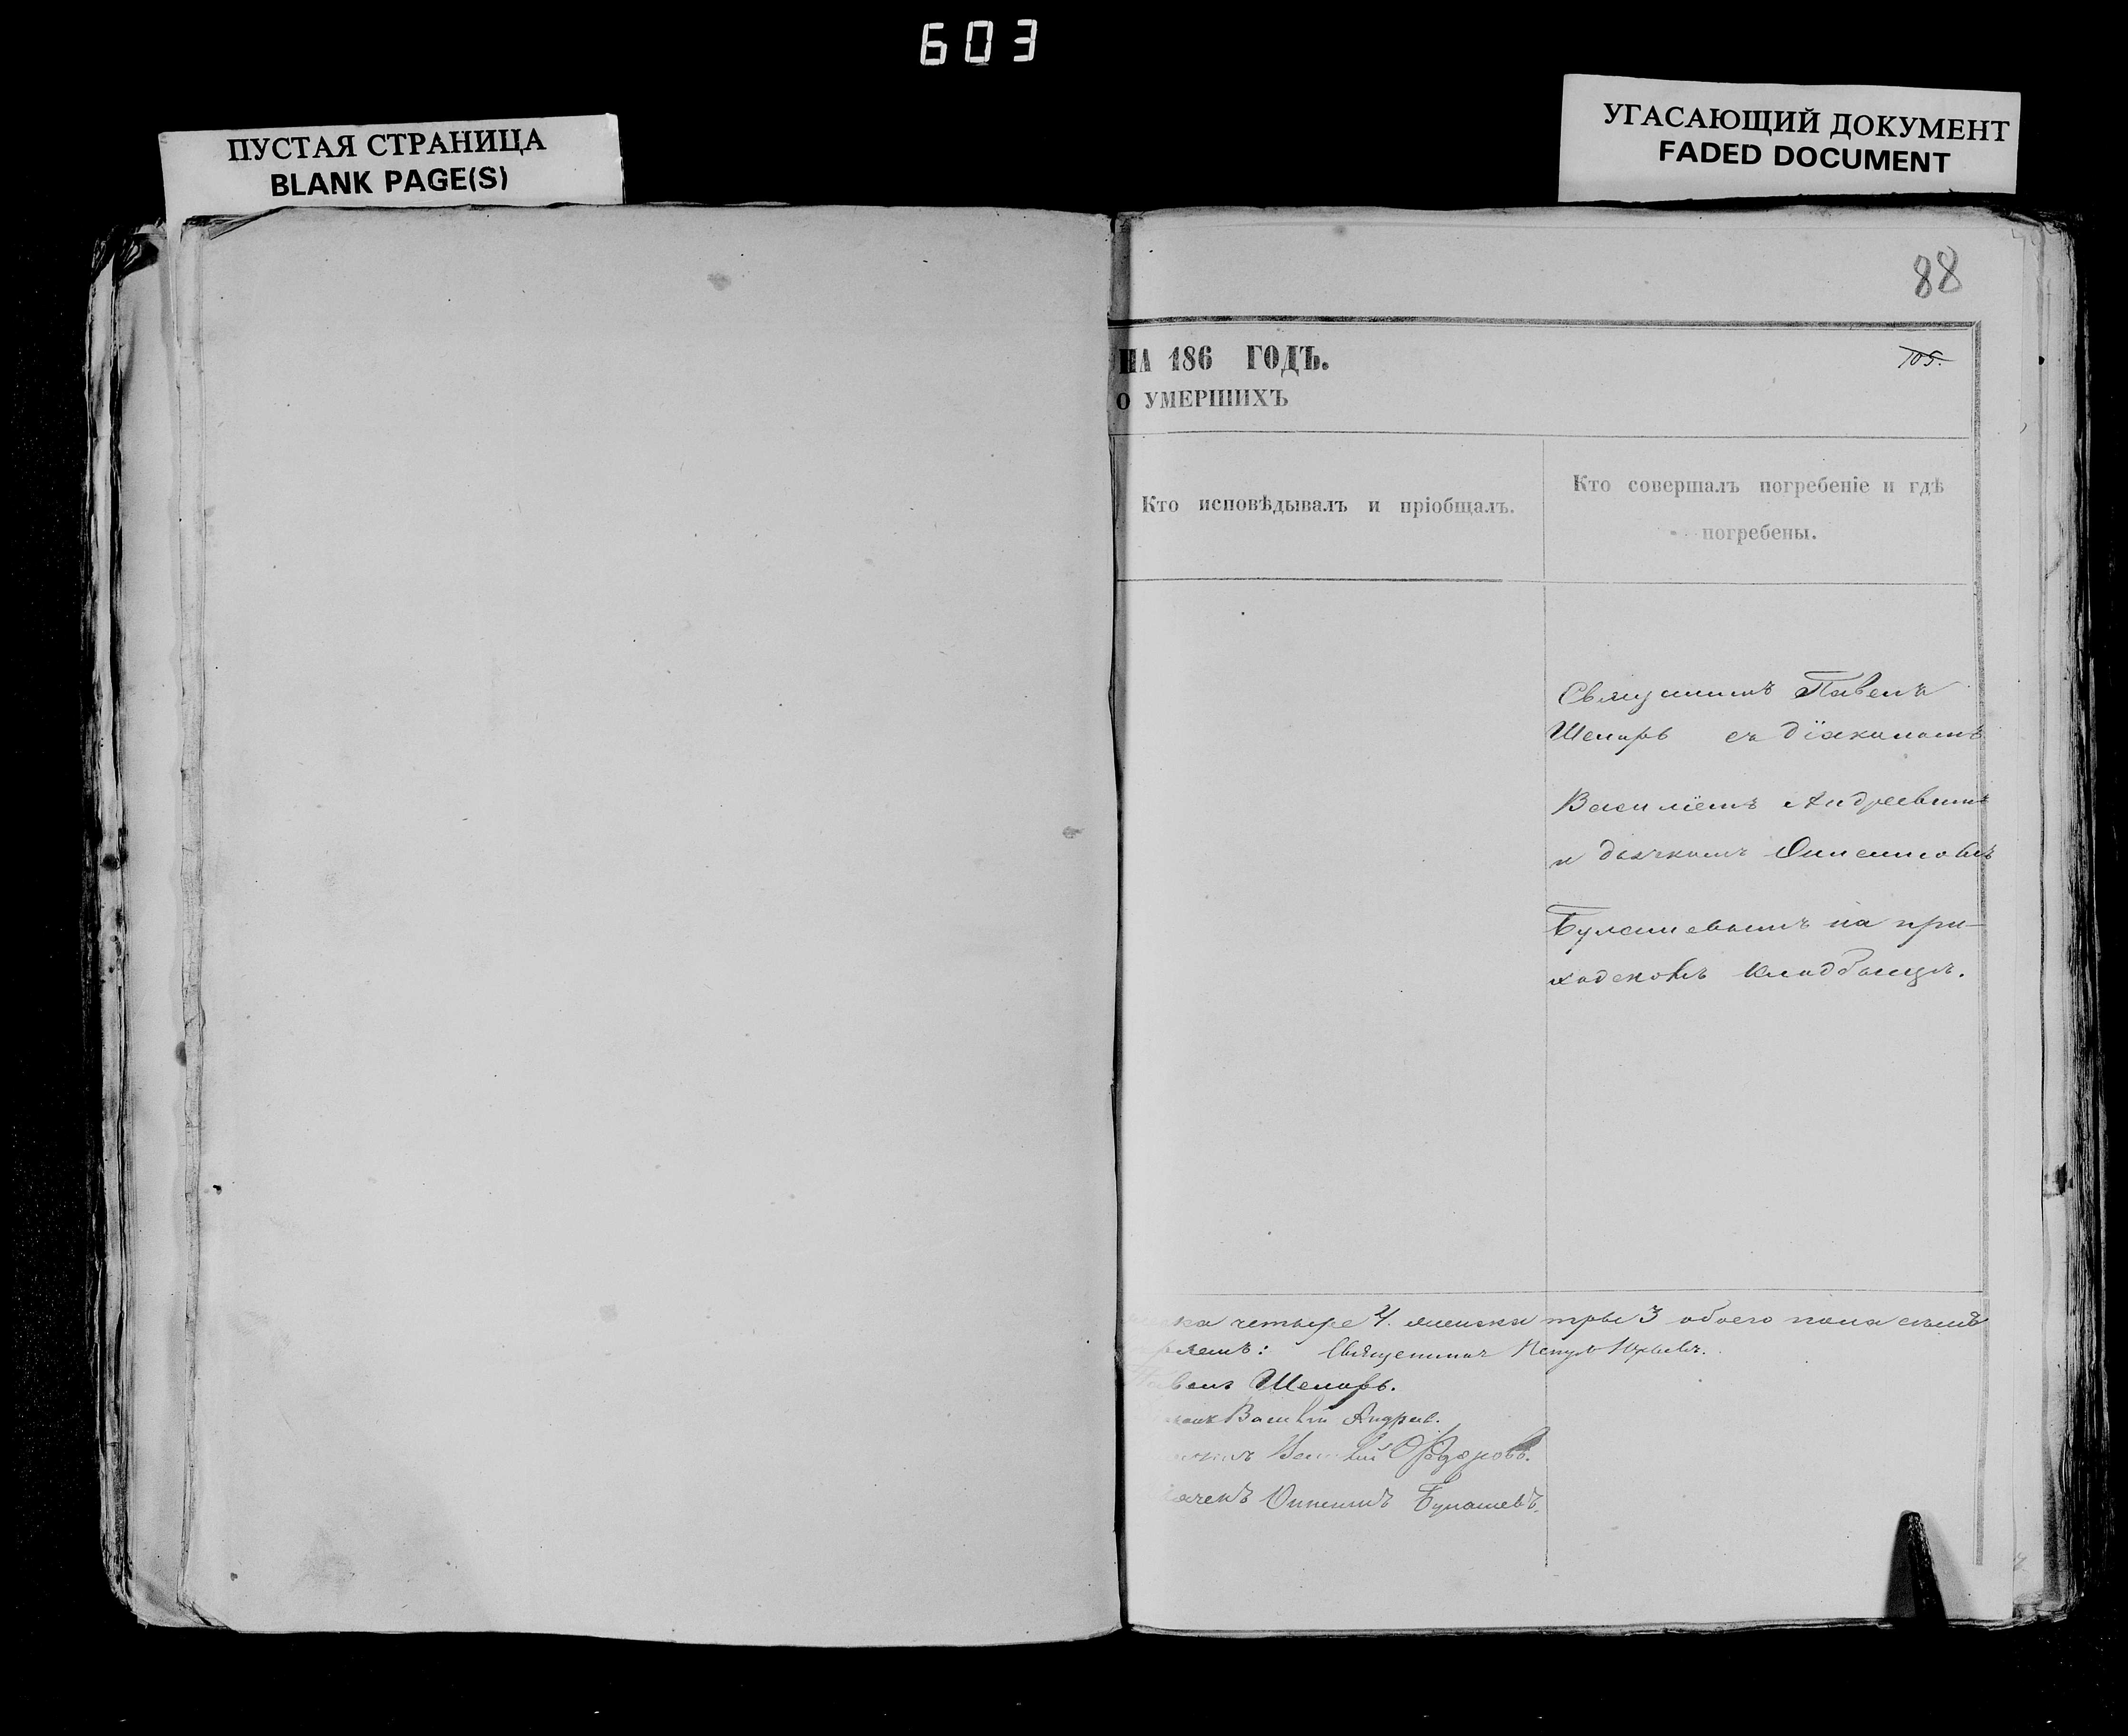 603
ПУСТАЯ СТРАНИЦА
BLANK PAGE(S)
УГАСАЮЩИЙ ДОКУМЕНТ
FADED DOCUMENT
88
НА 186 ГОДЪ.
105.
О УМЕРШИХЪ
Кто исповѣдывалъ и пріобщалъ.
Кто совершалъ погребеніе и гдѣ
погребены.
Священникъ Павелъ
съ діакономъ
Василіемъ Андреевымъ
и дьячкомъ
Булашевымъ на при-
ходскомъ кладбищѣ.
четыре 4. женска три 3 обоего пола семь
Священникъ
Павелъ
Василій Андреевъ.
Василій Ѳедоровъ.
Булашевъ.